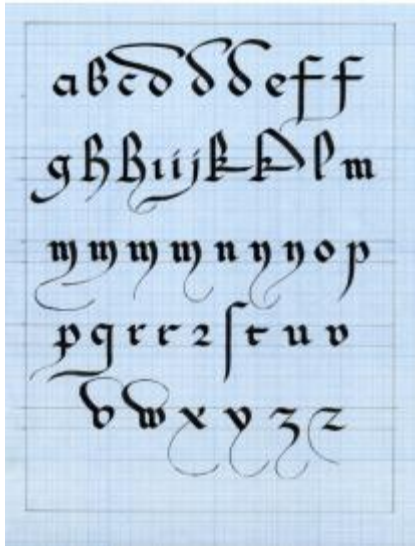 a b c d d d e f f
g h h i i j k k l m
m m m m n n n o p
p q r r ꝛ ſ t u v
v w x y z z